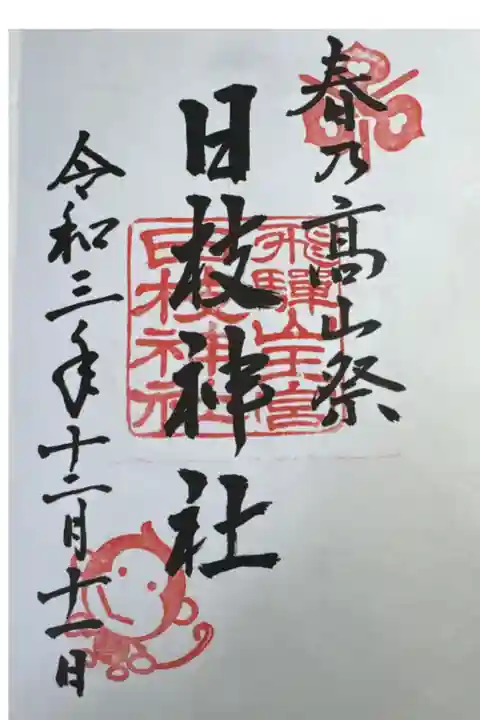 春乃高山祭
飛騨山王宮
日枝神社
日枝神社
令和三年十二月十一日